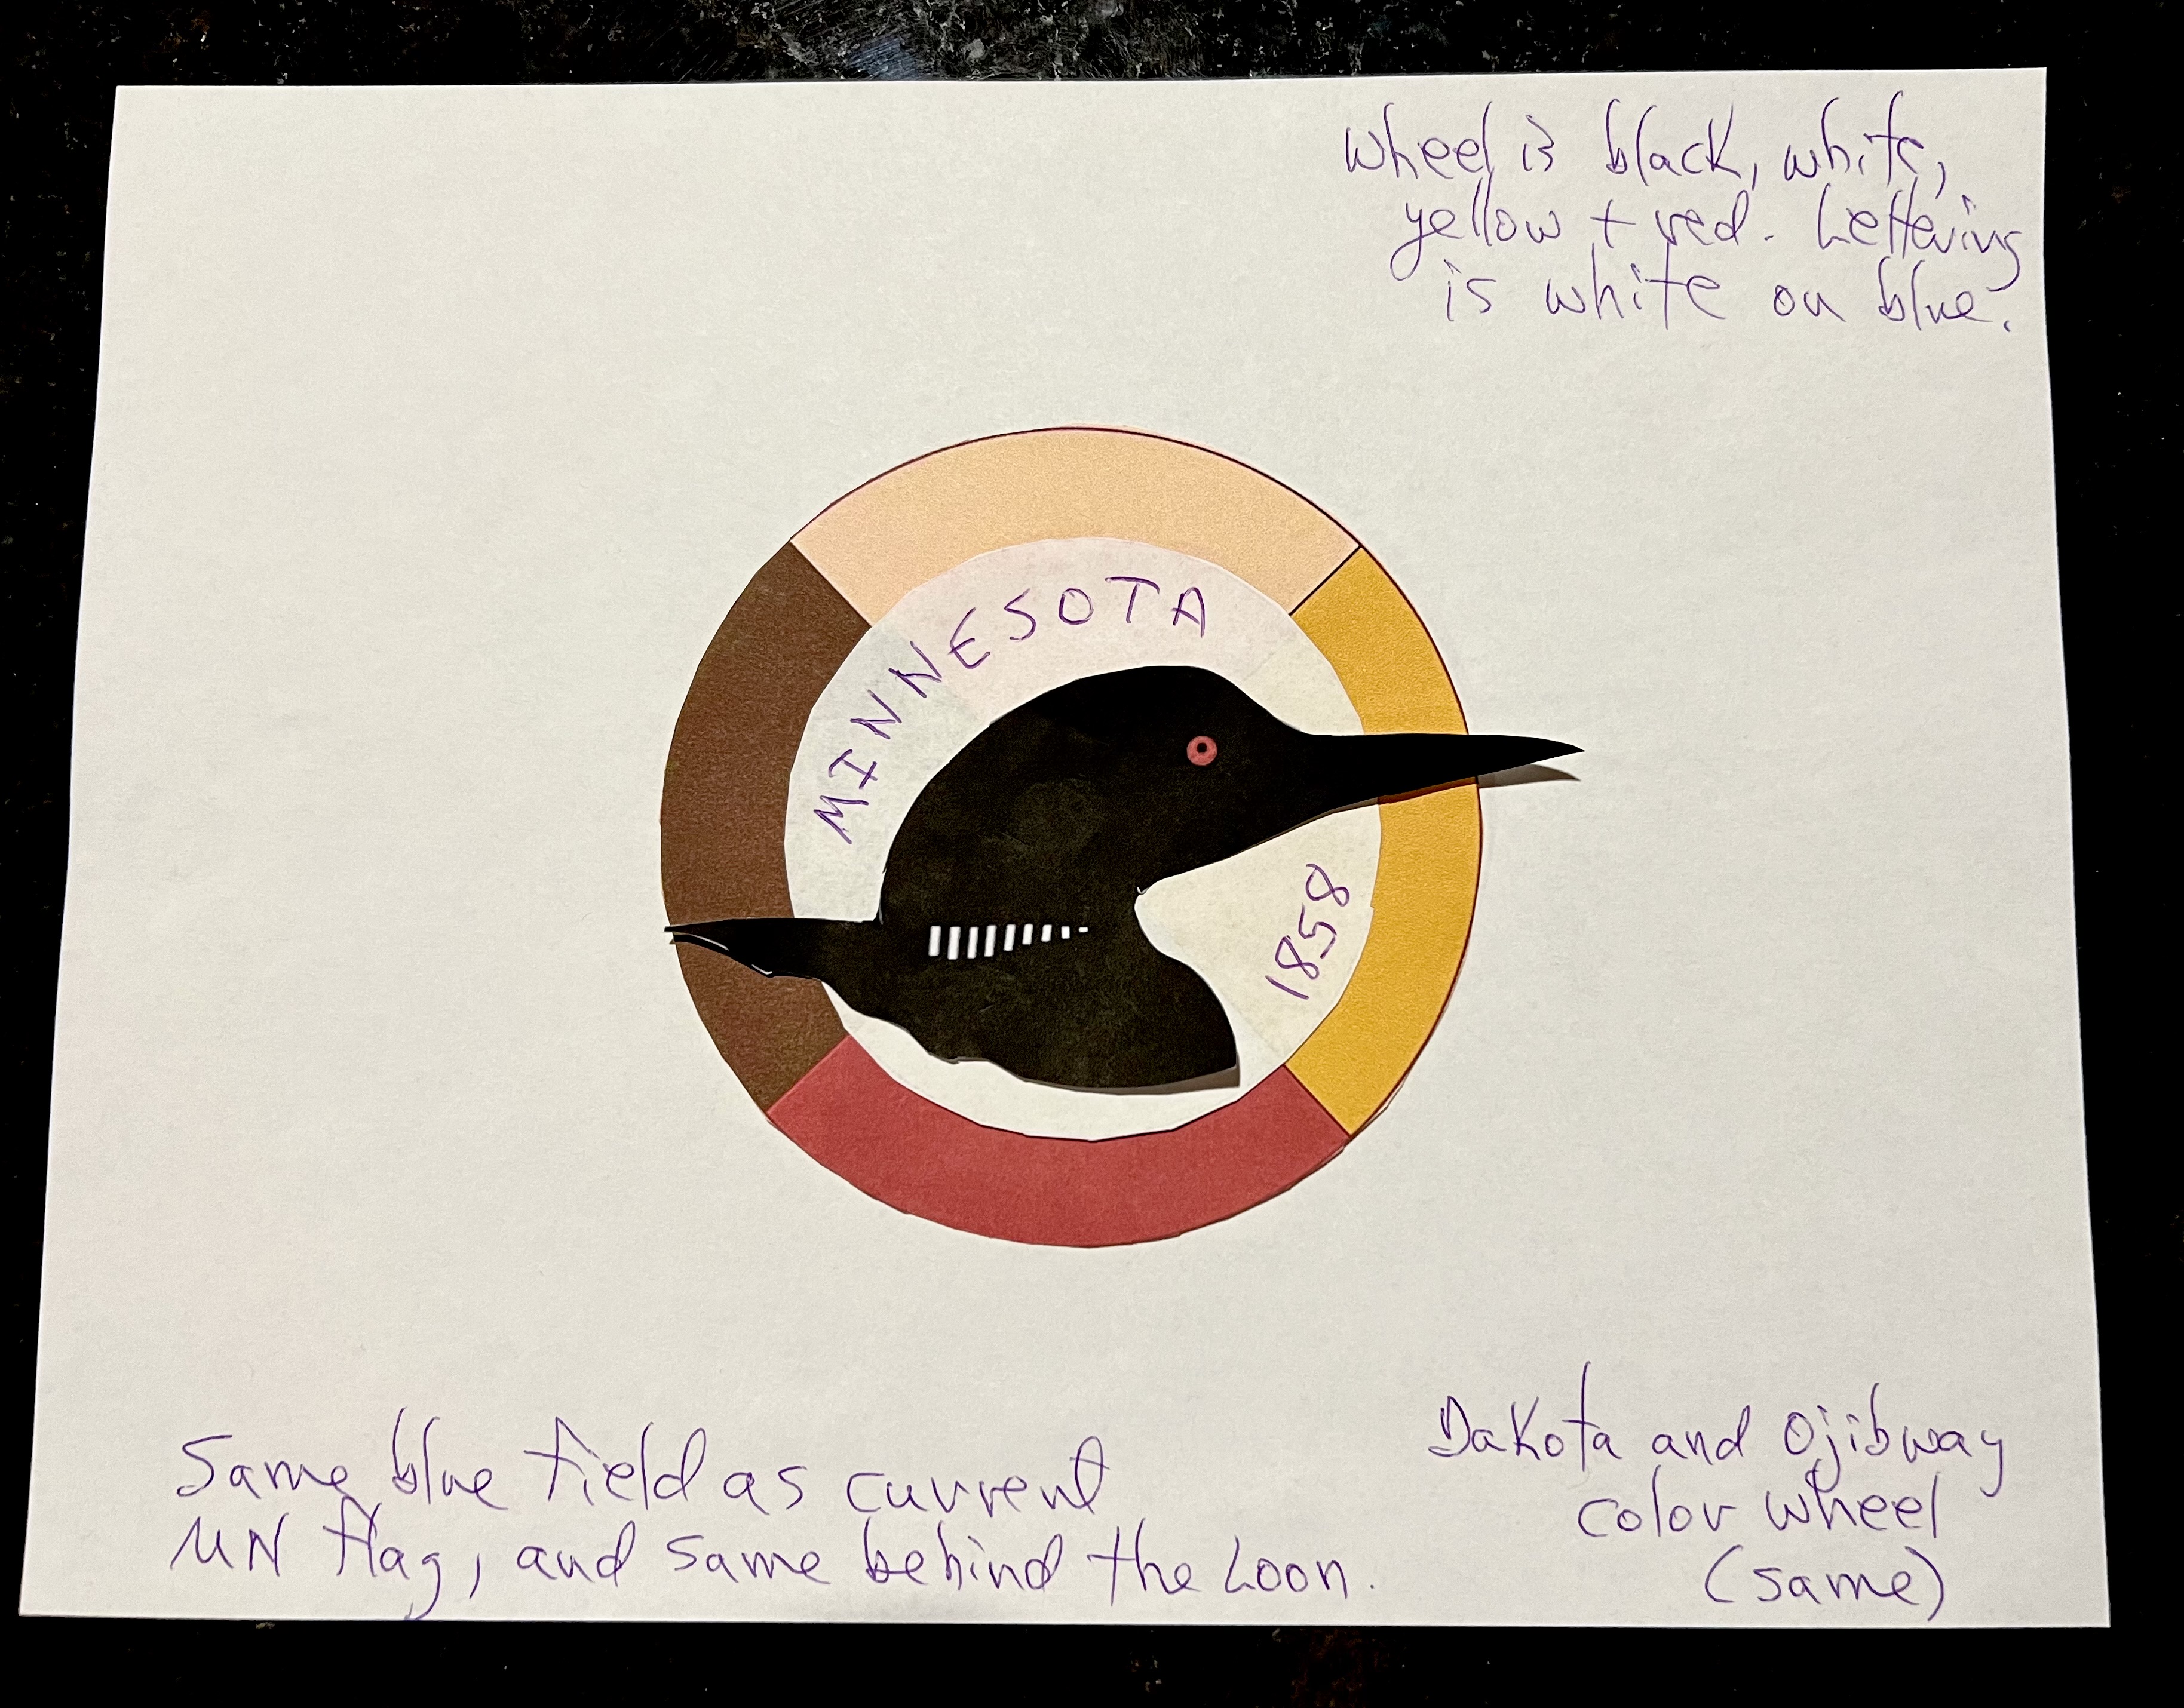 Wheel is black, white,
yellow + red. Lettering
is white on blue.
MINNESOTA
1858
Same blue field as current
MN flag, and same behind the Loon.
Dakota and Ojibway
color wheel
(same)